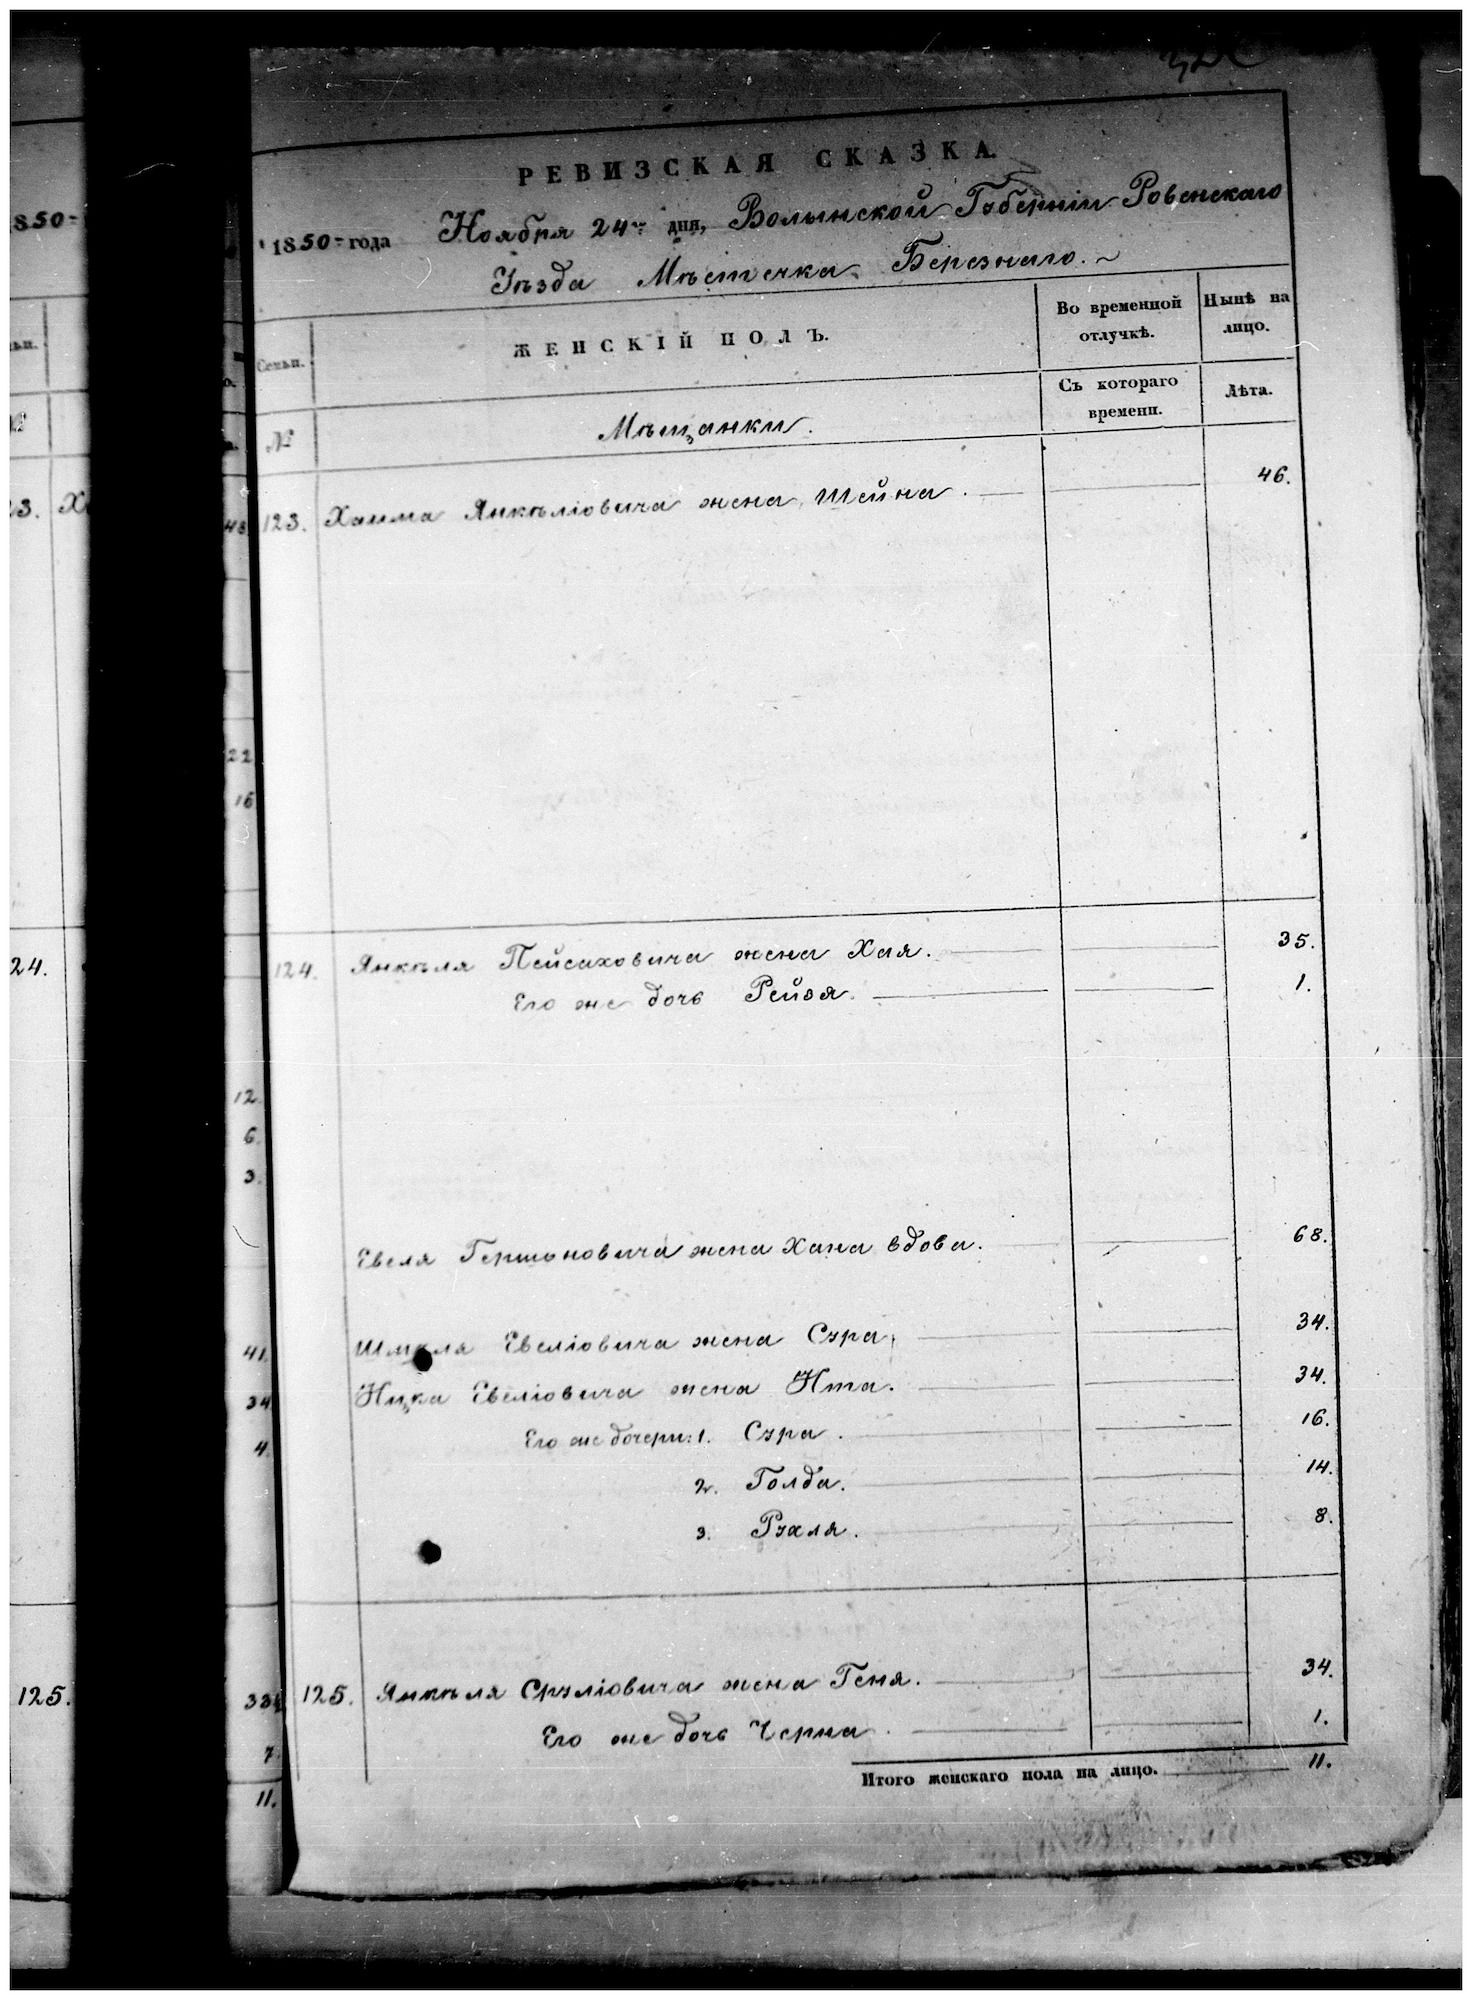 РЕВИЗСКАЯ СКАЗКА.
1850 года Ноября 24 дня, Волынской Губерніи Ровенскаго
Уѣзда Мѣстечка Березнаго.
Семьи. ЖЕНСКІЙ ПОЛЪ. Во временной отлучкѣ. Нынѣ на лицо.
№ Мѣщанки. Съ котораго времени. Лѣта.
123. Хаима Янкѣліовича жена Шейна. 46.
124. Янкѣля Пейсаховича жена Хая. 35.
Его же дочь Рейзя. 1.
Евеля Гершоновича жена Хана вдова. 68.
Шмуля Евеліовича жена Сура 34.
Ицка Евеліовича жена Ита. 34.
Его же дочери: 1. Сура. 16.
2. Голда. 14.
3. Рухля. 8.
125. Янкѣля Сруліовича жена Геня. 34.
Его же дочь Черна 1.
Итого женскаго пола на лицо. 11.
1850
23.
24.
125.
22
16
12.
6
3.
41.
34
4.
7
11.